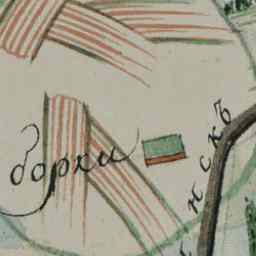 борки
нскъ